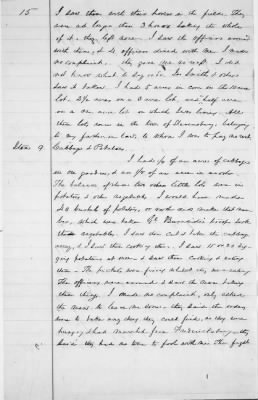 15
I saw them with their horses in the fields, they
were at large then 3 horses taking the whole
of it & they left none. I saw the officers around
with them, & the officers dined with me. I made
no complaint. They gave me no rect. I did
not know what to say. Smith & others
saw it taken. I had 5 acres in corn in the
lot. 2/0 was on a lot, and half acre
on a acre lot on which I was living. All
these lots were in the town of belonging
to my father in law, to whom I was to pay no rent
Item 9. Cabbage & Potatoes
I had 1/8 of an acre of cabbage
in the garden, & an 1/8 of an acre in another
The balance of these two other little lots was in
potatoes & other vegetables. I would have made
20 bushels of potatoes, or more and make that number
too, which was taken. Gl Burnside's troops took
these vegetables. I saw them cut & take the cabbage
away, & I saw them cooking them. I saw 15 or 20 dig-
ging potatoes at once & saw them cooking & eating
them. The pickets was firing whilst they were eating
The officers were around & saw the men taking
these things. I made no complaint, only asked
the men to leave me some. They said the orders
were to take any thing they could find, as they were
hungry & had marched from Fredericksburg. They
said they had no time to fool with me then fought